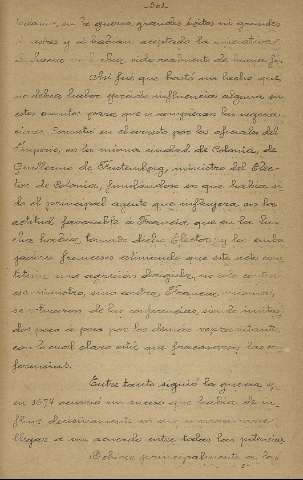 en la guerra grandes éxitos ni grandes
y si habían aceptado la
de buena fe.
Así fué que bastó un hecho que
no debía haber ejercido influencia alguna en
este asunto para que se rompieran las negocia-
ciones. Consistió en el arresto por los oficiales del
Imperio, en la misma ciudad de Colonia, de
Guillermo de Furstenberg, ministro del Elec-
tor de Colonia, fundándose en que había si-
do el principal agente que influyera en la
actitud favorable a Francia, que en la lu-
cha había tomado dicho Elector, y los emba-
jadores franceses estimando que este acto cons-
tituía una agresión no sólo contra
ministro, sino contra Francia misma,
se retiraron de las conferencias, siendo imita-
dos paso a paso por los demás representantes
con lo cual claro está que fracasaron las con-
ferencias.
Entre tanto siguió la guerra y
en 1674 ocurrió un suceso que había de in-
fluir decisivamente en que
llegar a un acuerdo entre todas las potencias
principalmente a la